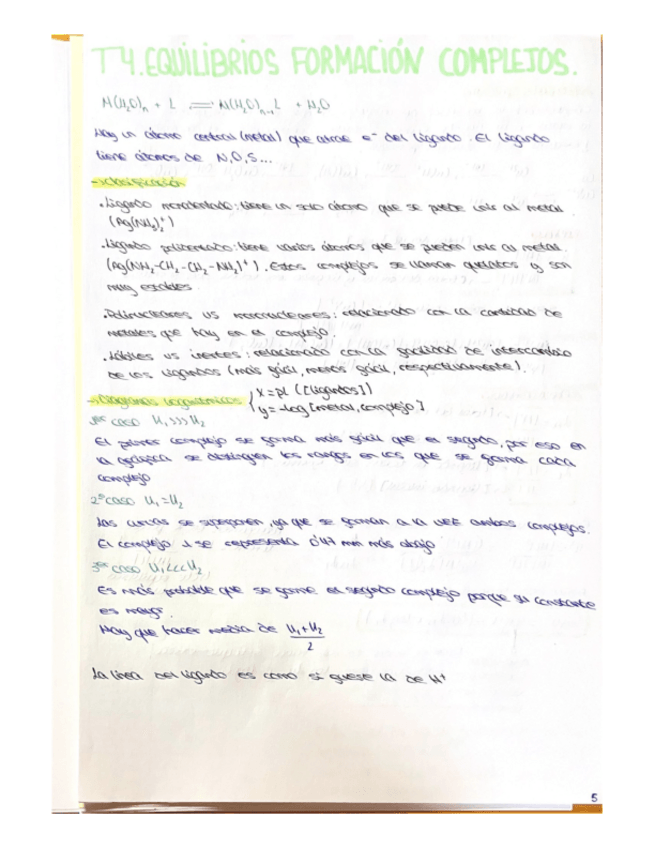 T4. EQUILIBRIOS FORMACIÓN COMPLEJOS.
M(H₂O)ₙ + L ⇌ M(H₂O)ₙ₋₁L + H₂O
Hay un átomo central (metal) que atrae e⁻ del ligando. El ligando
tiene átomos de N, O, S...
- Clasificación
• Ligando monodentado: tiene un solo átomo que se puede unir al metal.
(Ag(NH₃)₂⁺)
• Ligando polidentado: tiene varios átomos que se pueden unir al metal.
(Ag(NH₂-CH₂-CH₂-NH₂)⁺). Estos complejos se llaman quelatos y son
muy estables.
• Polinucleares vs mononucleares: relacionado con la cantidad de
metales que hay en el complejo.
• Lábiles vs inertes: relacionado con la facilidad de intercambio
de los ligandos (más fácil, menos fácil, respectivamente).
- Diagramas logarítmicos { x = pL ([ligandos])
y = -log [metal, complejo]
1er caso K₁>>>K₂
El primer complejo se forma más fácil que el segundo, por eso en
la gráfica se distinguen los rangos en los que se forma cada
complejo
2º caso K₁=K₂
Las curvas se superponen, ya que se forman a la vez ambos complejos.
El complejo 1 se representa 0'47 mm más abajo
3er caso K₁<<<K₂
Es más probable que se forme el segundo complejo porque su constante
es mayor.
Hay que hacer media de K₁+K₂
2
La línea del ligando es como si fuese la de H⁺
5